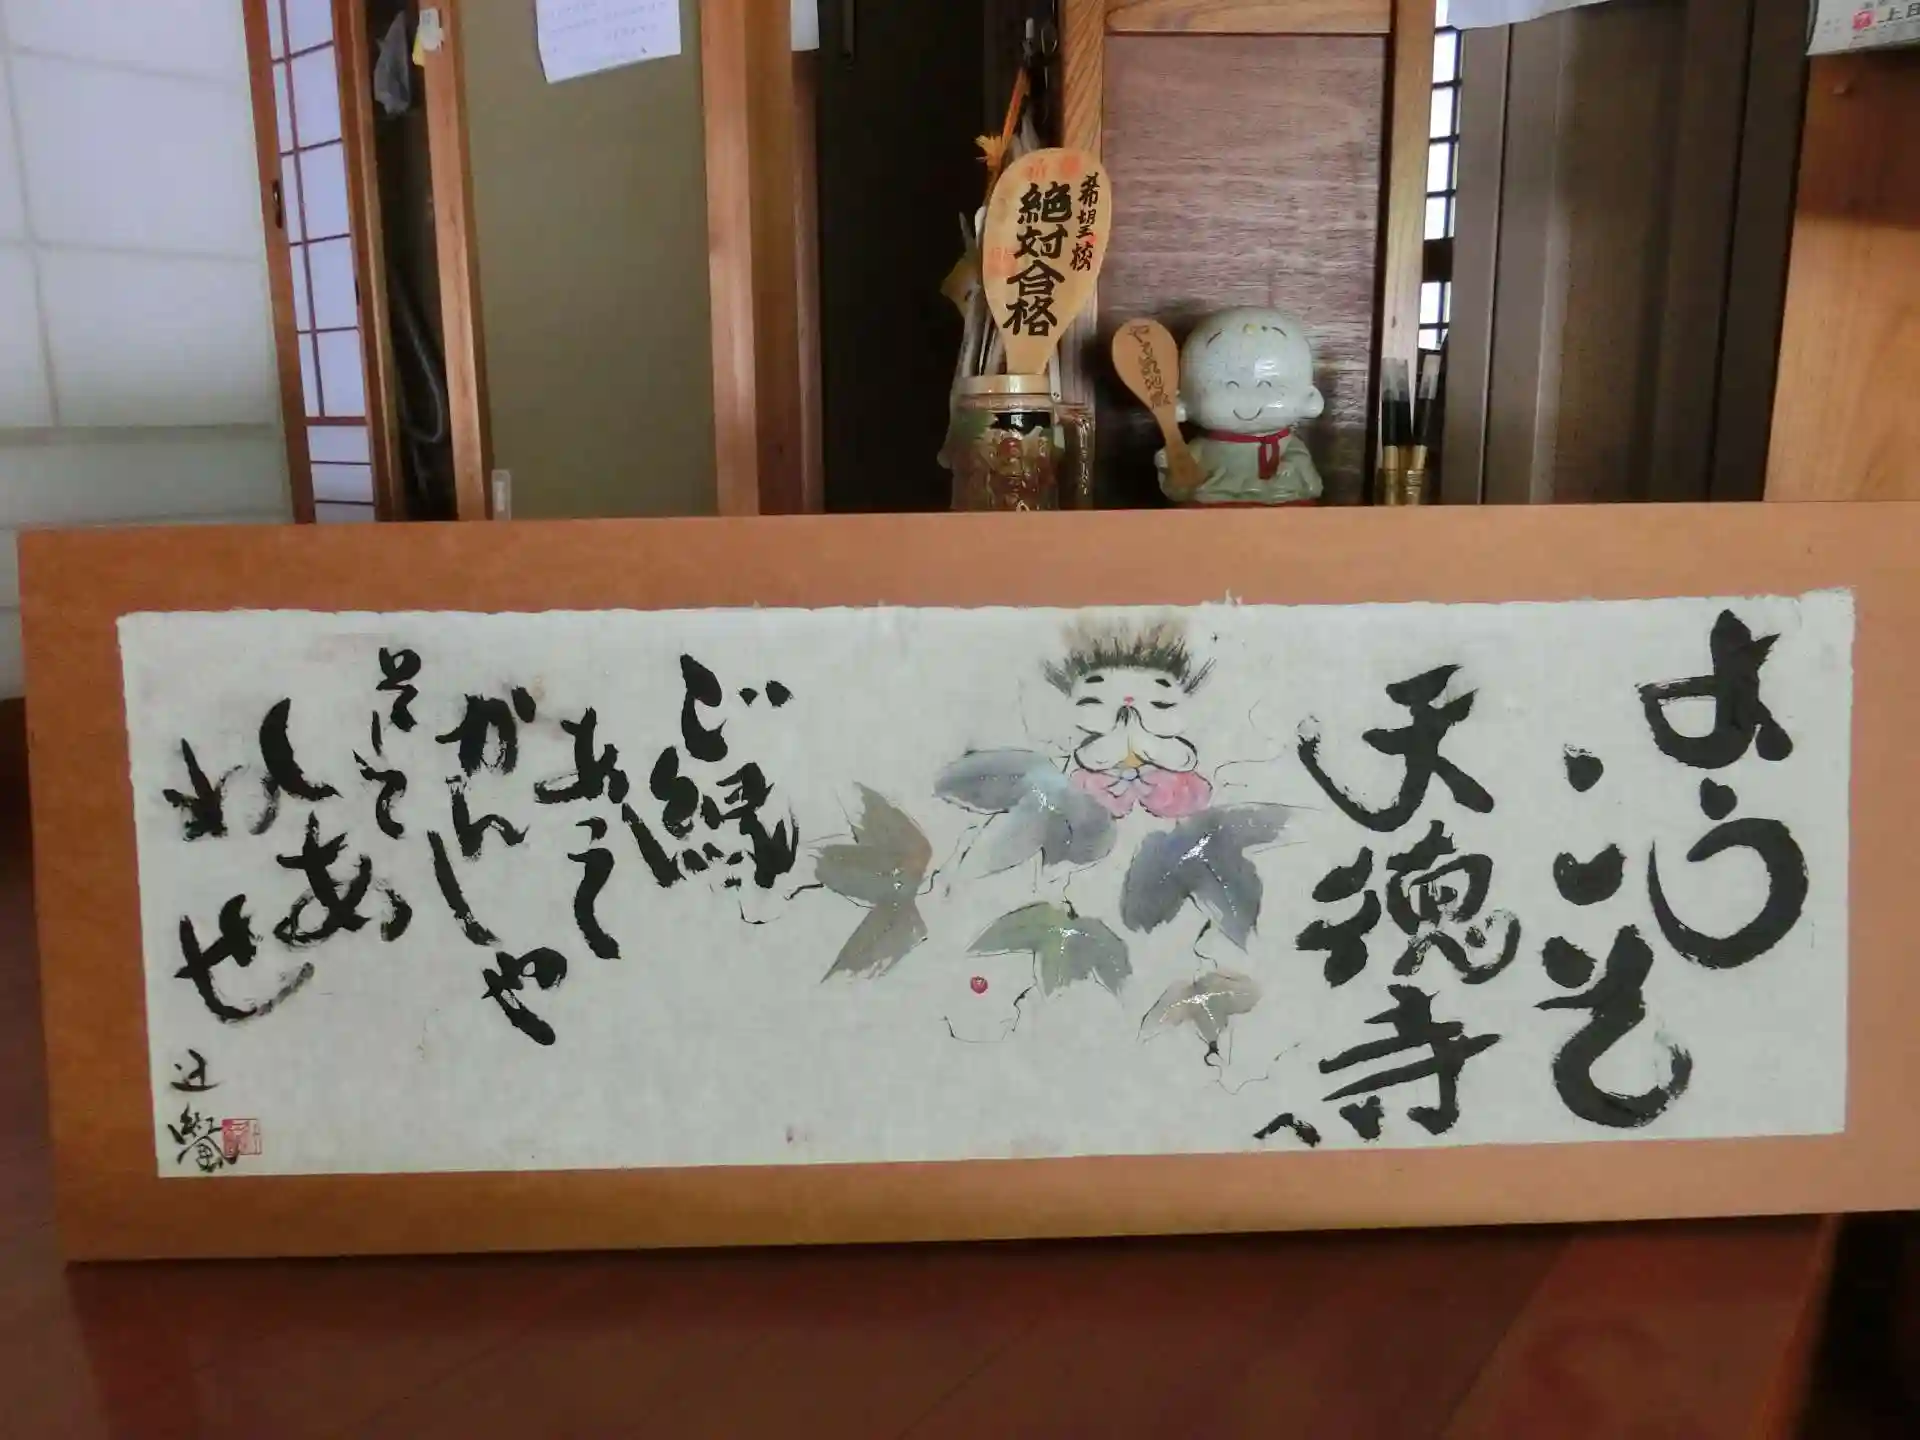 希望校
絶対合格
やる気地蔵
ようこそ
天徳寺
へ
ご縁
あって
かんしゃ
そして
しあ
わせ